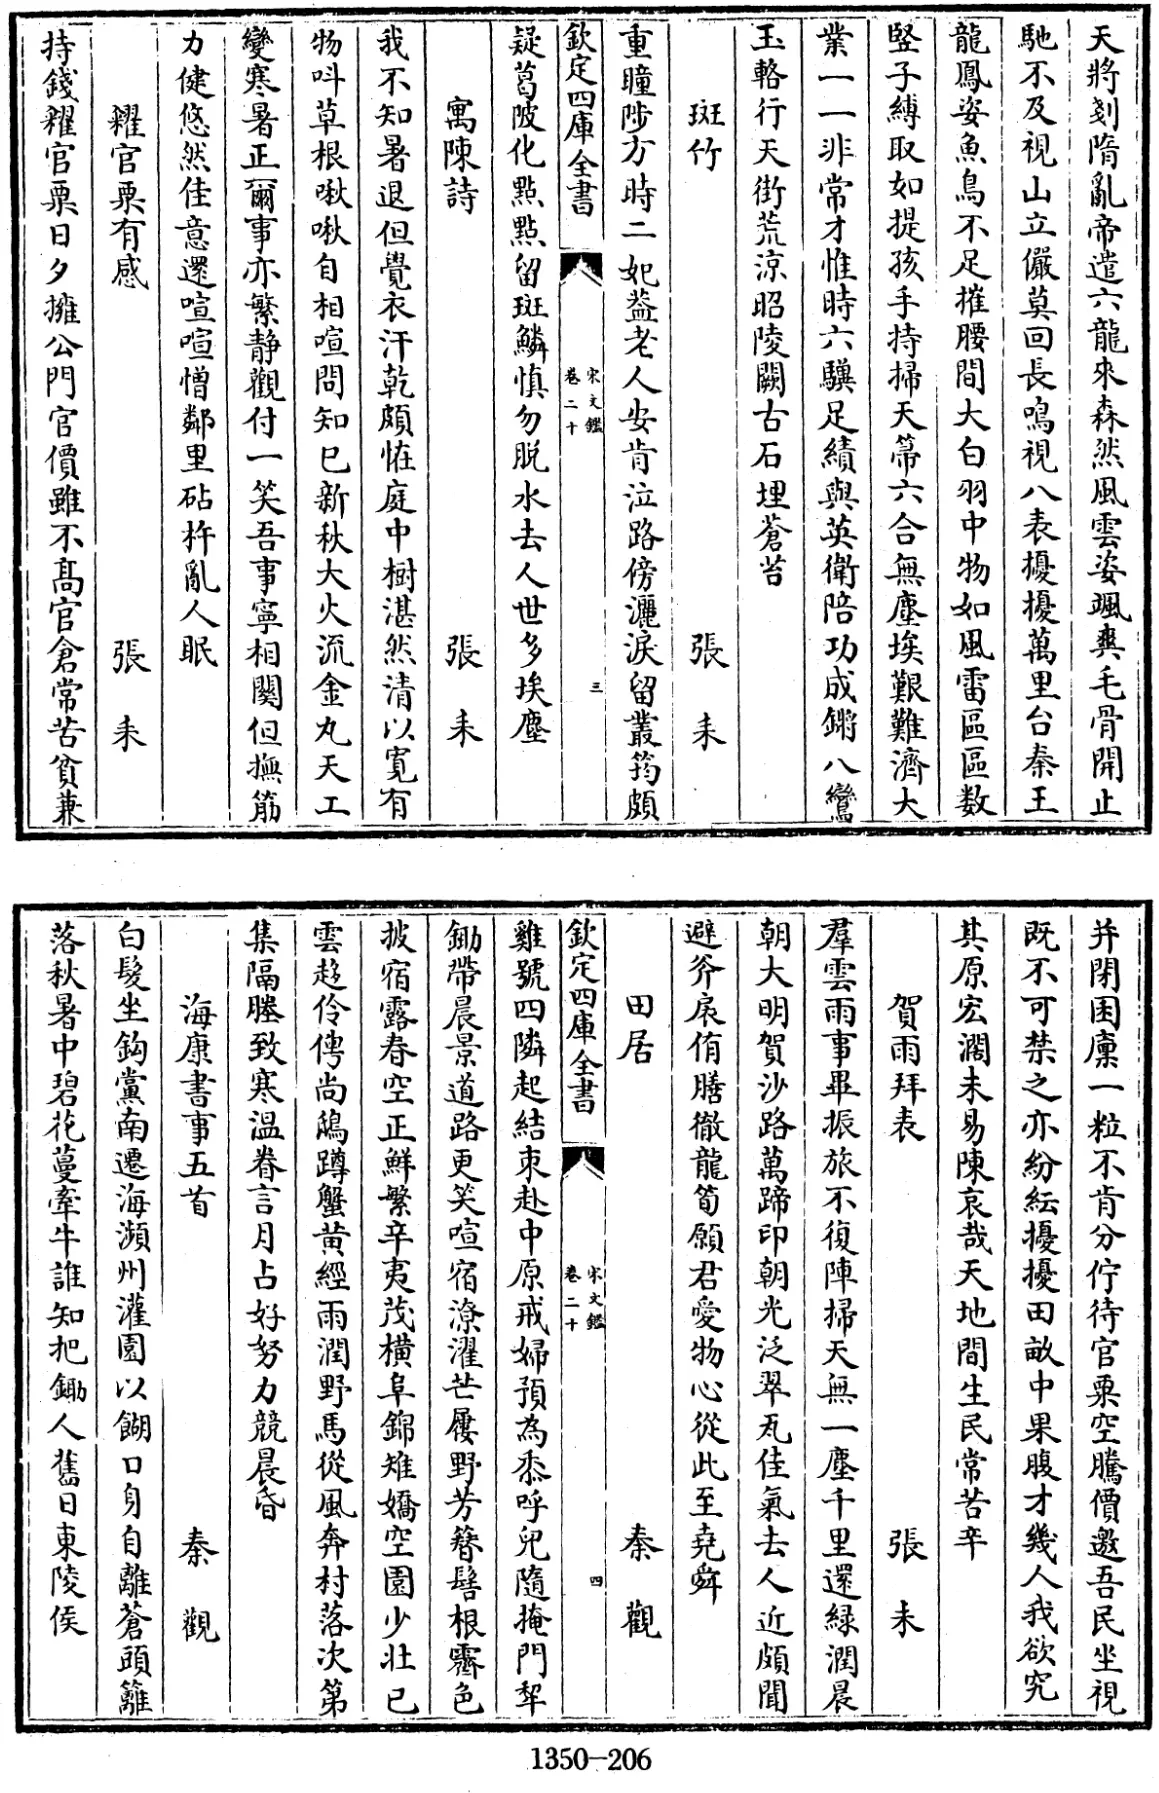 天將剗隋亂帝遣六龍來森然風雲姿颯爽毛骨開止
馳不及視山立儼莫回長鳴視八表擾擾萬里台秦王
龍鳳姿魚鳥不足摧腰間大白羽中物如風雷區區數
竪子縛取如提孩手持掃天箒六合無塵埃艱難濟大
業一一非常才惟時六驥足績與英衛陪功成鏘八鸞
玉輅行天街荒涼昭陵闕古石埋蒼苔
斑竹 張耒
重瞳陟方時二妃葢老人安肯泣路傍灑淚留叢筠頗
欽定四庫全書 宋文鑑 卷二十 三
疑葛陂化㸃㸃留斑鱗慎勿脱水去人世多埃塵
寓陳詩 張耒
我不知暑退但覺衣汗乾頗恠庭中樹湛然清以寛有
物呌草根啾啾自相喧問知已新秋大火流金丸天工
變寒暑正爾事亦繁静觀付一笑吾事寧相闗但撫筋
力健悠然佳意還喧喧憎鄰里砧杵亂人眠
糴官粟有感 張耒
持錢糴官粟日夕擁公門官價雖不髙官倉常苦貧兼
并閉囷廪一粒不肯分佇待官粟空騰價邀吾民坐視
既不可禁之亦紛紜擾擾田畝中果腹才幾人我欲究
其原宏濶未易陳哀哉天地間生民常苦辛
賀雨拜表 張耒
羣雲雨事畢振旅不復陣掃天無一塵千里還緑潤晨
朝大明賀沙路萬蹄印朝光泛翠瓦佳氣去人近頗聞
避斧扆侑膳徹龍筍願君愛物心從此至堯舜
田居 秦觀
欽定四庫全書 宋文鑑 卷二十 四
雞號四隣起結束赴中原戒婦預為黍呼兒隨掩門犂
鋤帶晨景道路更笑喧宿潦濯芒屨野芳簪髻根霽色
披宿露春空正鮮繁辛夷茂橫阜錦雉嬌空園少壯已
雲趍伶俜尚鴟蹲蟹黄經雨潤野馬從風奔村落次第
集隔塍致寒温眷言月占好努力競晨昏
海康書事五首 秦觀
白髪坐鈎黨南遷海瀕州灌園以餬口身自雜蒼頭籬
落秋暑中碧花蔓牽牛誰知把鋤人舊日東陵侯
1350-206